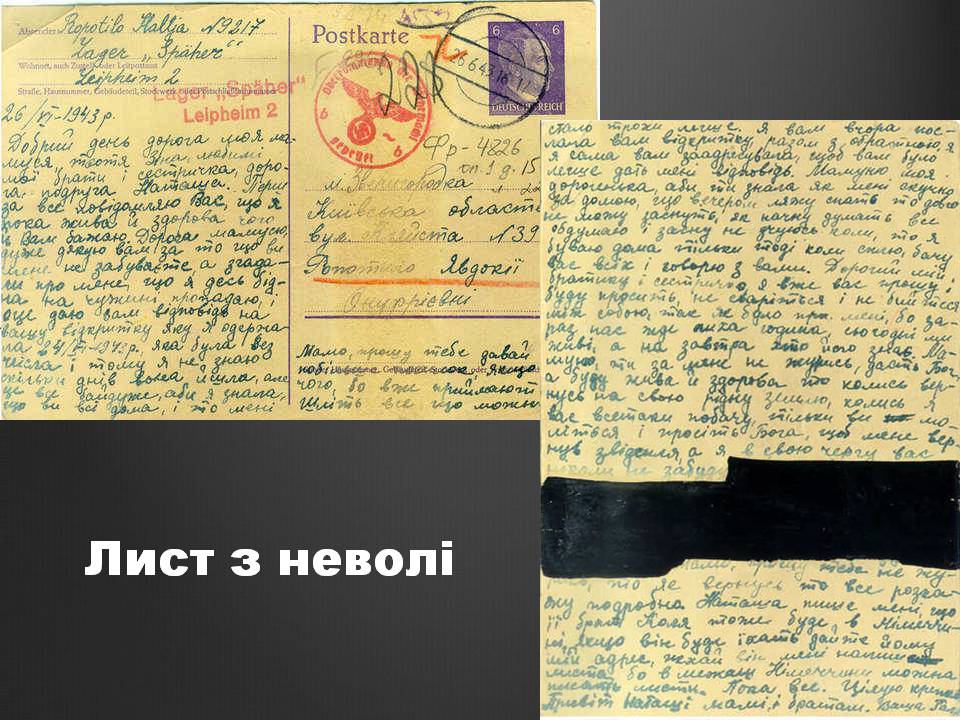 Absender: Ropotilo Hallja N 9217
Lager „Späher"
Wohnort, auch Zustell- oder Leitpostamt
Leipheim 2
Straße, Hausnummer, Gebäudeteil, Stockwerk oder Postschließfachnummer
Lager „Späher"
Leipheim 2
26/VI-1943 р.
Добрий день дорога моя ма-
муся, тьотя любимі
мої брати і сестричка, доро-
га подруга Наташа. Перш
за все повідомляю Вас, що я
пока жива й здорова чого
й Вам бажаю. Дорога мамусю,
дуже дякую вам за то що ви
мене не забуваєте, а згада-
ли про мене, що я десь бід-
на на чужині пропадаю, і
оце даю вам відповідь на
вашу відкритку яку я одержа-
ла 24/VI-1943р., яка була без
числа і тому я не знаю
скільки днів вона йшла, але
це все байдуже, аби я знала,
що ви всі дома, і то мені
Postkarte
6 6
DEUTSCHES REICH
26.6.43.16
228
geprüft
Фр-4226
м. Звенигородка
Київська область
вул. N 39
Ропотило Явдокії
Онуфрієвні
Мамо, прошу тебе давай
побільше посилок якщо
чого, бо вже приймають
Шліть все що можна
стало трохи легше. Я вам вчора пос-
лала вам відкритку, разом з обратною, я
я сама вам заадрісувала, щоб вам було
легше дать мені відповідь. Мамуню моя
дорогенька, аби ти знала як мені скучно
за домою, що вечером ляжу спать то довго
не можу заснуть, як начну думать все
обдумаю і засну не чуюсь коли, то я
буваю дома тільки тоді коли сплю, бачу
вас всіх і говорю з вами. Дорогий мій
братику і сестричко, я вже вас прошу і
буду просить, не сваріться і не бийтесся
між собою, так як було при мені, бо за-
раз нас жде лиха година, сьогодні ми
живі, а на завтра хто його знає. Ма-
муню, ти за мене не журись, дасть Бог,
а буду жива й здорова то колись вер-
нусь на свою рідну землю, колись я
вас всетаки побачу, тільки ви мо-
літься і просіть Бога, щоб мене вер-
нув звідсиля, а я в свою чергу вас
ніколи не забуду
Мамо, прошу тебе не жу-
рись, то як вернусь то все розка-
жу подробно. Наташа пише мені, що
її брат Коля тоже буде в Німеччи-
ні, якщо він буде їхать дайте йому
мій адрес, нехай він мені напише
листа бо в межах Німеччини можна
писать листи. Пока все. Цілую крепко
Привіт Наташі мамі і братам. Ваша Галя
Лист з неволі